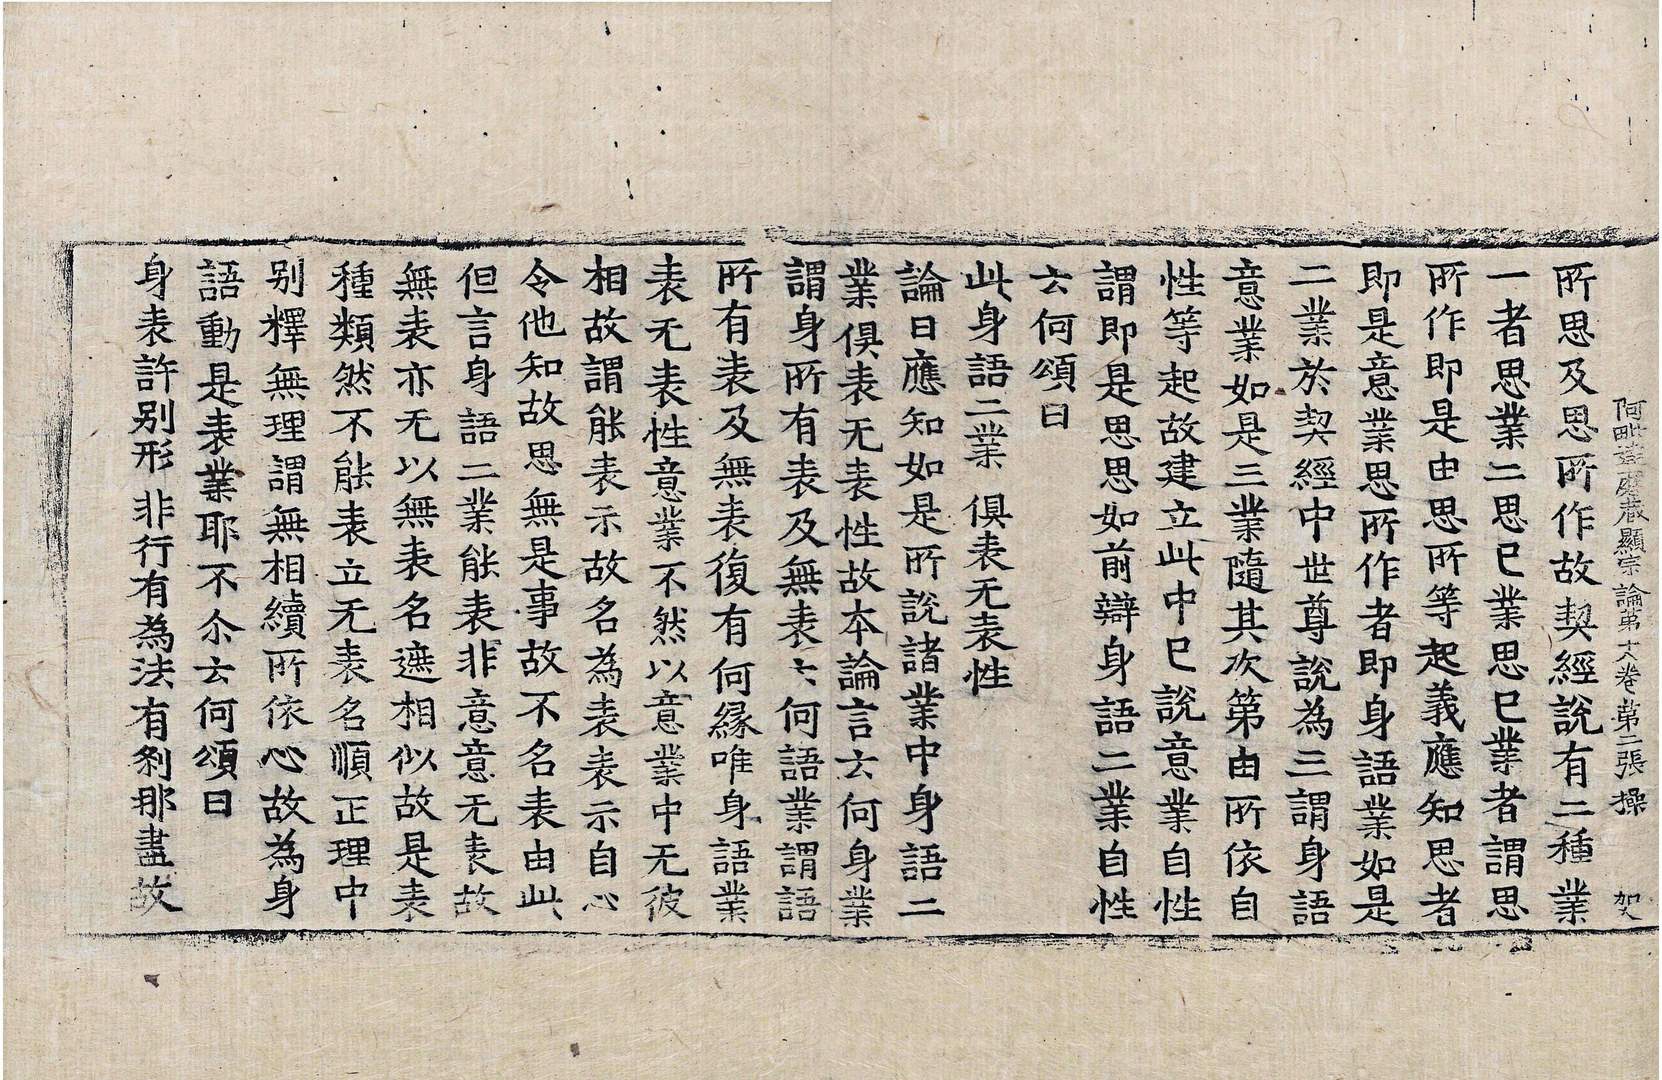 阿毗達磨藏顯宗論第十八卷第二張 操
所思及思所作故契經說有二種業
一者思業二思已業思已業者謂思
所作即是由思所等起義應知思者
即是意業思所作者即身語業如是
二業於契經中世尊說為三謂身語
意業如是三業隨其次第由所依自
性等起故建立此中已說意業自性
謂即是思思如前辯身語二業自性
云何頌曰
此身語二業 俱表无表性
論曰應知如是所說諸業中身語二
業俱表无表性故本論言云何身業
謂身所有表及無表云何語業謂語
所有表及無表復有何緣唯身語業
表无表性意業不然以意業中无彼
相故謂能表示故名為表表示自心
令他知故思無是事故不名表由此
但言身語二業能表非意意无表故
無表亦无以無表名遮相似故是表
種類然不能表立无表名順正理中
別釋無理謂無相續所依心故為身
語動是表業耶不尒云何頌曰
身表許別形 非行有為法有剎那盡故